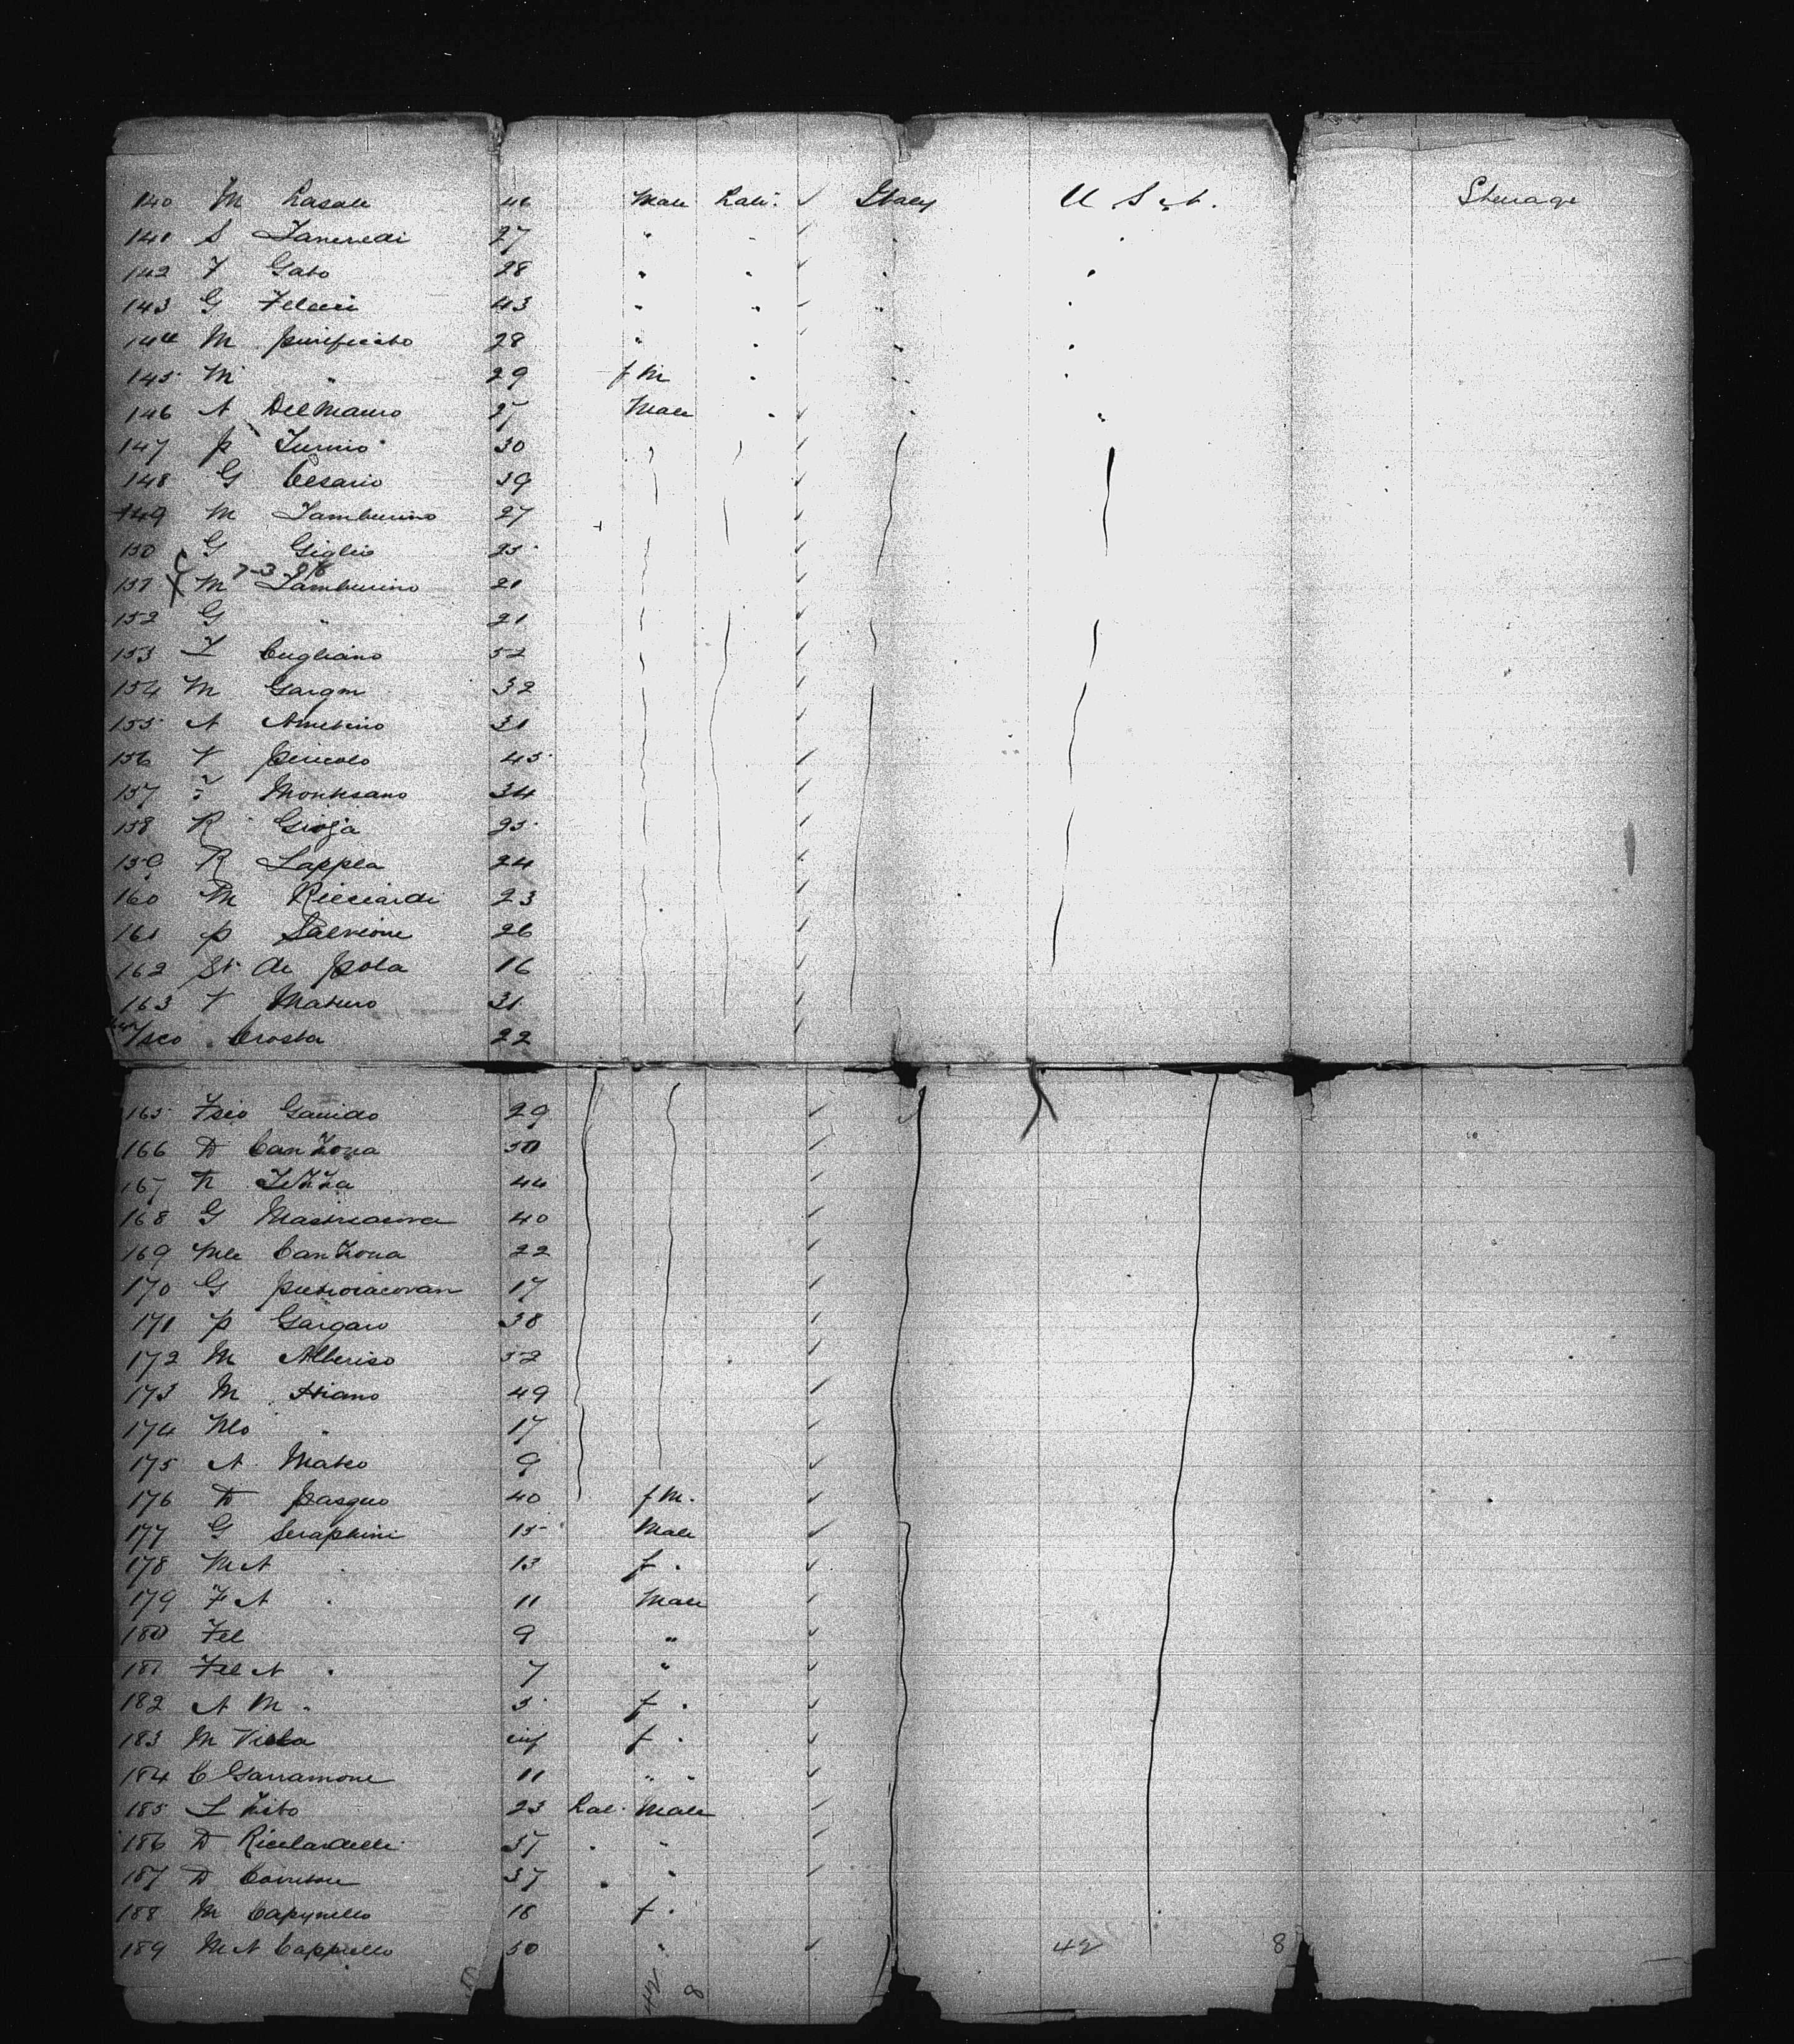 140 M Casale 40 Male Lab. ✓ Italy U S A. Steerage
141 S Tancredi 27 " " ✓ " "
142 F Gato 28 " " ✓ " "
143 G Feleci 43 " " ✓ " "
144 M Purificato 28 " " ✓ " "
145 M " 29 f m " " "
146 A DelMauro 27 Male " ✓ " "
147 P Iurino 30 ✓
148 G Cesario 39 ✓
149 M Tamburino 27 ✓
150 G Giglio 25 ✓
151 M Tamburino 21 ✓
152 G " 21 ✓
153 F Cugliano 52 ✓
154 M Gargm 32 ✓
155 A 31 ✓
156 V Piccolo 45 ✓
157 Montesano 34 ✓
158 R Gioja 25 ✓
159 R Lappla 24 ✓
160 M Ricciardi 23 ✓
161 P Salvione 26 ✓
162 St de Pola 16 ✓
163 V Maturo 31 ✓
Fsco Crosta 22 ✓
165 Fsco Garrido 29 ✓
166 D CanZona 50 ✓
167 N IeZZa 44 ✓
168 G 40 ✓
169 Mle CanZona 22 ✓
170 G Pietroiacovan 17 ✓
171 P Gargaro 38 ✓
172 M Alberiso 52 ✓
173 M 49 ✓
174 Nlo " 17 ✓
175 A Mateo 9 ✓
176 D Pasquo 40 f m. ✓
177 G Seraphini 15 Male ✓
178 M A " 13 f " ✓
179 F A " 11 Male ✓
180 Fel 9 " ✓
181 Fel A " 7 " ✓
182 A M " 5 f " ✓
183 M Vicka inf f " ✓
184 C Garramone 11 " " ✓
185 L Zito 23 Lab. Male ✓
186 D Ricclardelli 37 " " ✓
187 D 37 " " ✓
188 M Capynello 18 f "
189 M A Cappiello 50 " ✓ 42 8
42 8